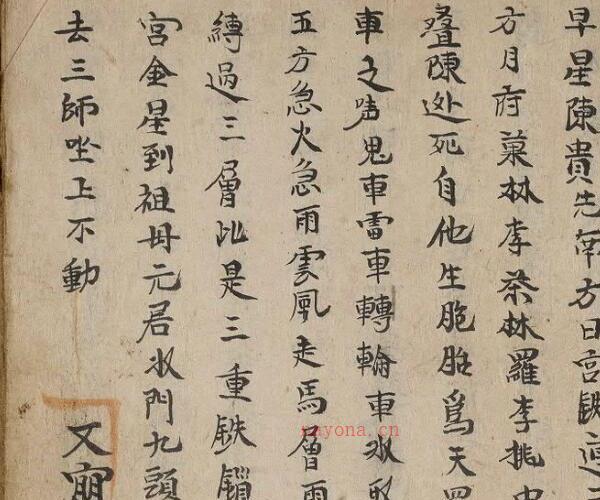 早星陳貴先南方日宮鉄
方月府菓林李茶林羅李桃
疊陳处死自他生胞胎爲天
車之声鬼車雷車轉輪車水
五方急火急雨雲風走馬層雨
縛過三層比是三重鉄鎖
宮金星到祖毋元居水門九頭
去三師坐上不動
又
nayona.cn